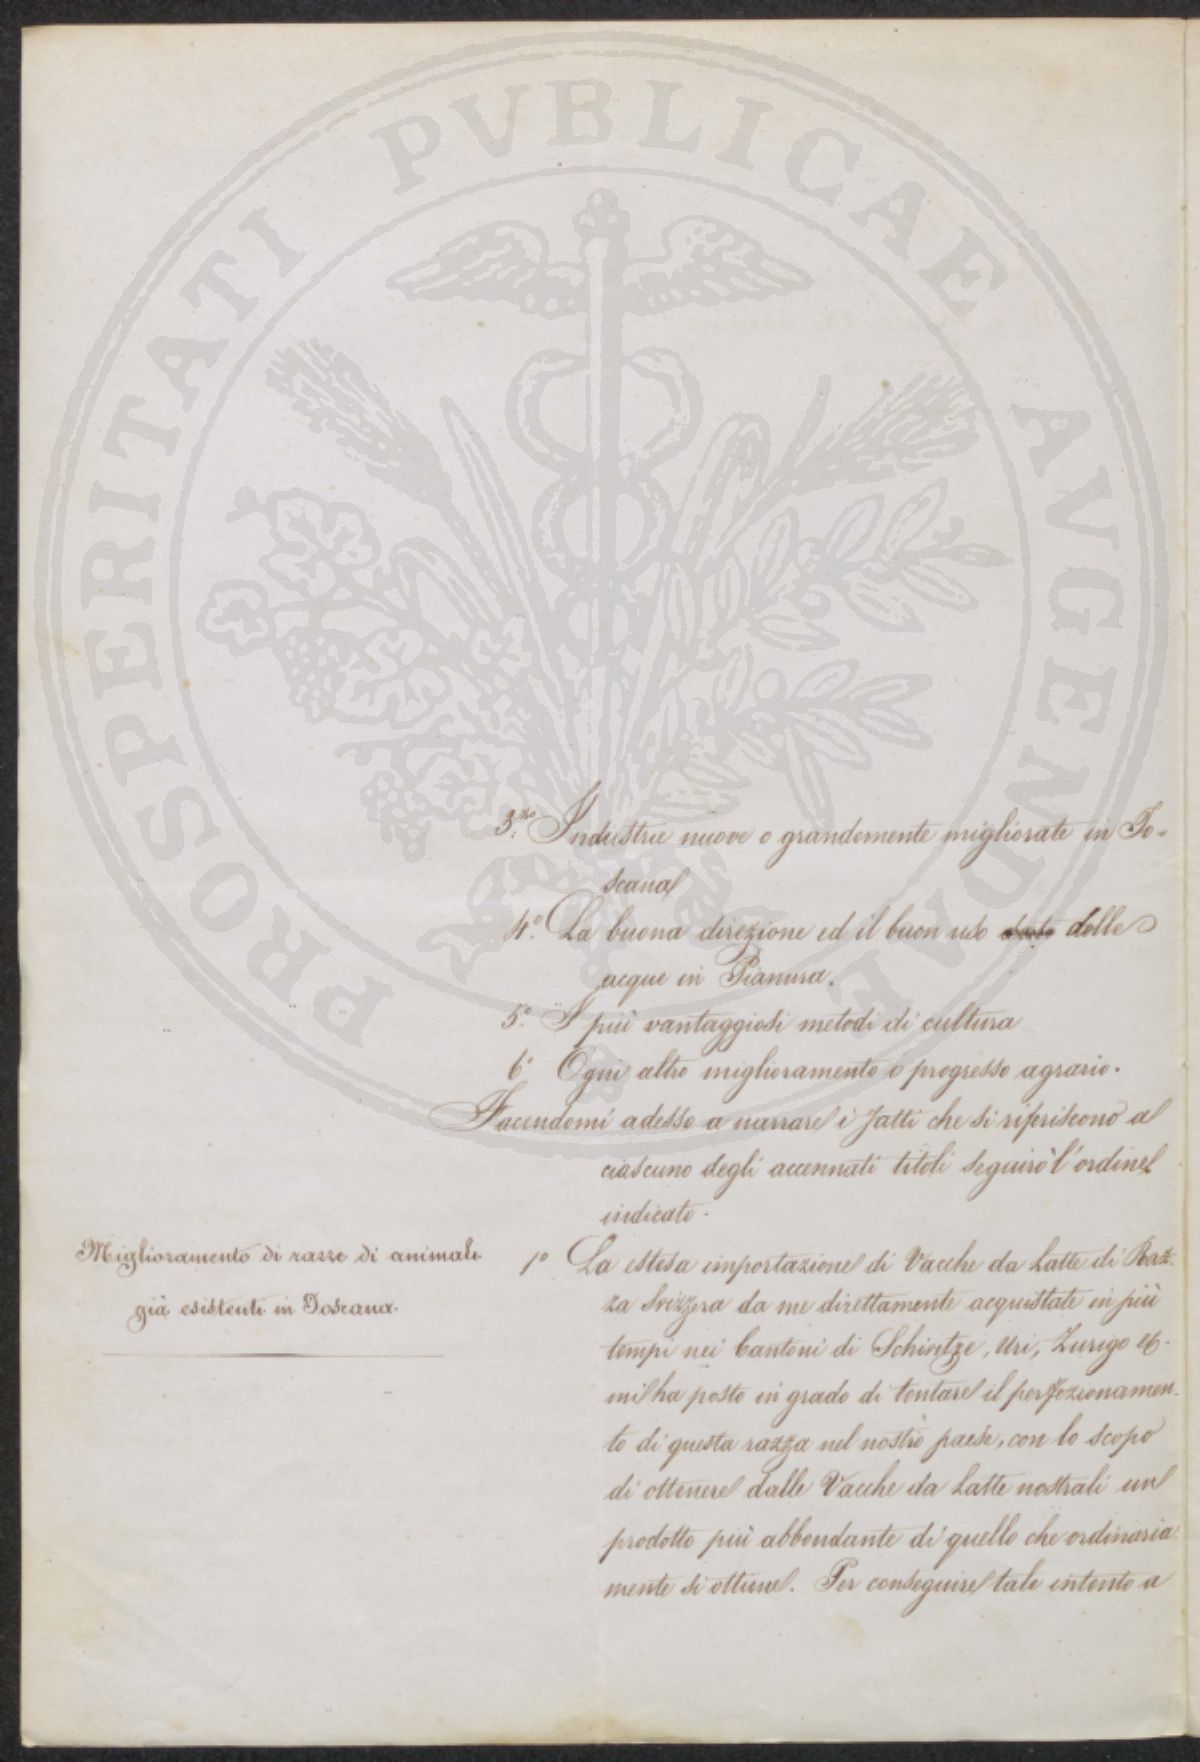 PROSPERITATI PVBLICAE AVGENDAE
3.zo Industrie nuove o grandemente migliorate in To=
scana
4.o La buona direzione ed il buon uso delle
acque in Pianura.
5.o I più vantaggiosi metodi di cultura
6.o Ogni altro miglioramento o progresso agrario.
Facendomi adesso a narrare i fatti che si riferiscono a
ciascuno degli accennati titoli seguirò l'ordine
indicato.
Miglioramento di razze di animali
già esistenti in Toscana.
1o La estesa importazione di Vacche da Latte di Raz-
za Svizzera da me direttamente acquistate in più
tempi nei Cantoni di Schwitze, Uri, Zurigo
mi ha posto in grado di tentare il perfezionamen-
to di questa razza nel nostro paese, con lo scopo
di ottenere dalle Vacche da Latte nostrali un
prodotto più abbondante di quello che ordinaria-
mente si ottiene. Per conseguire tale intento a